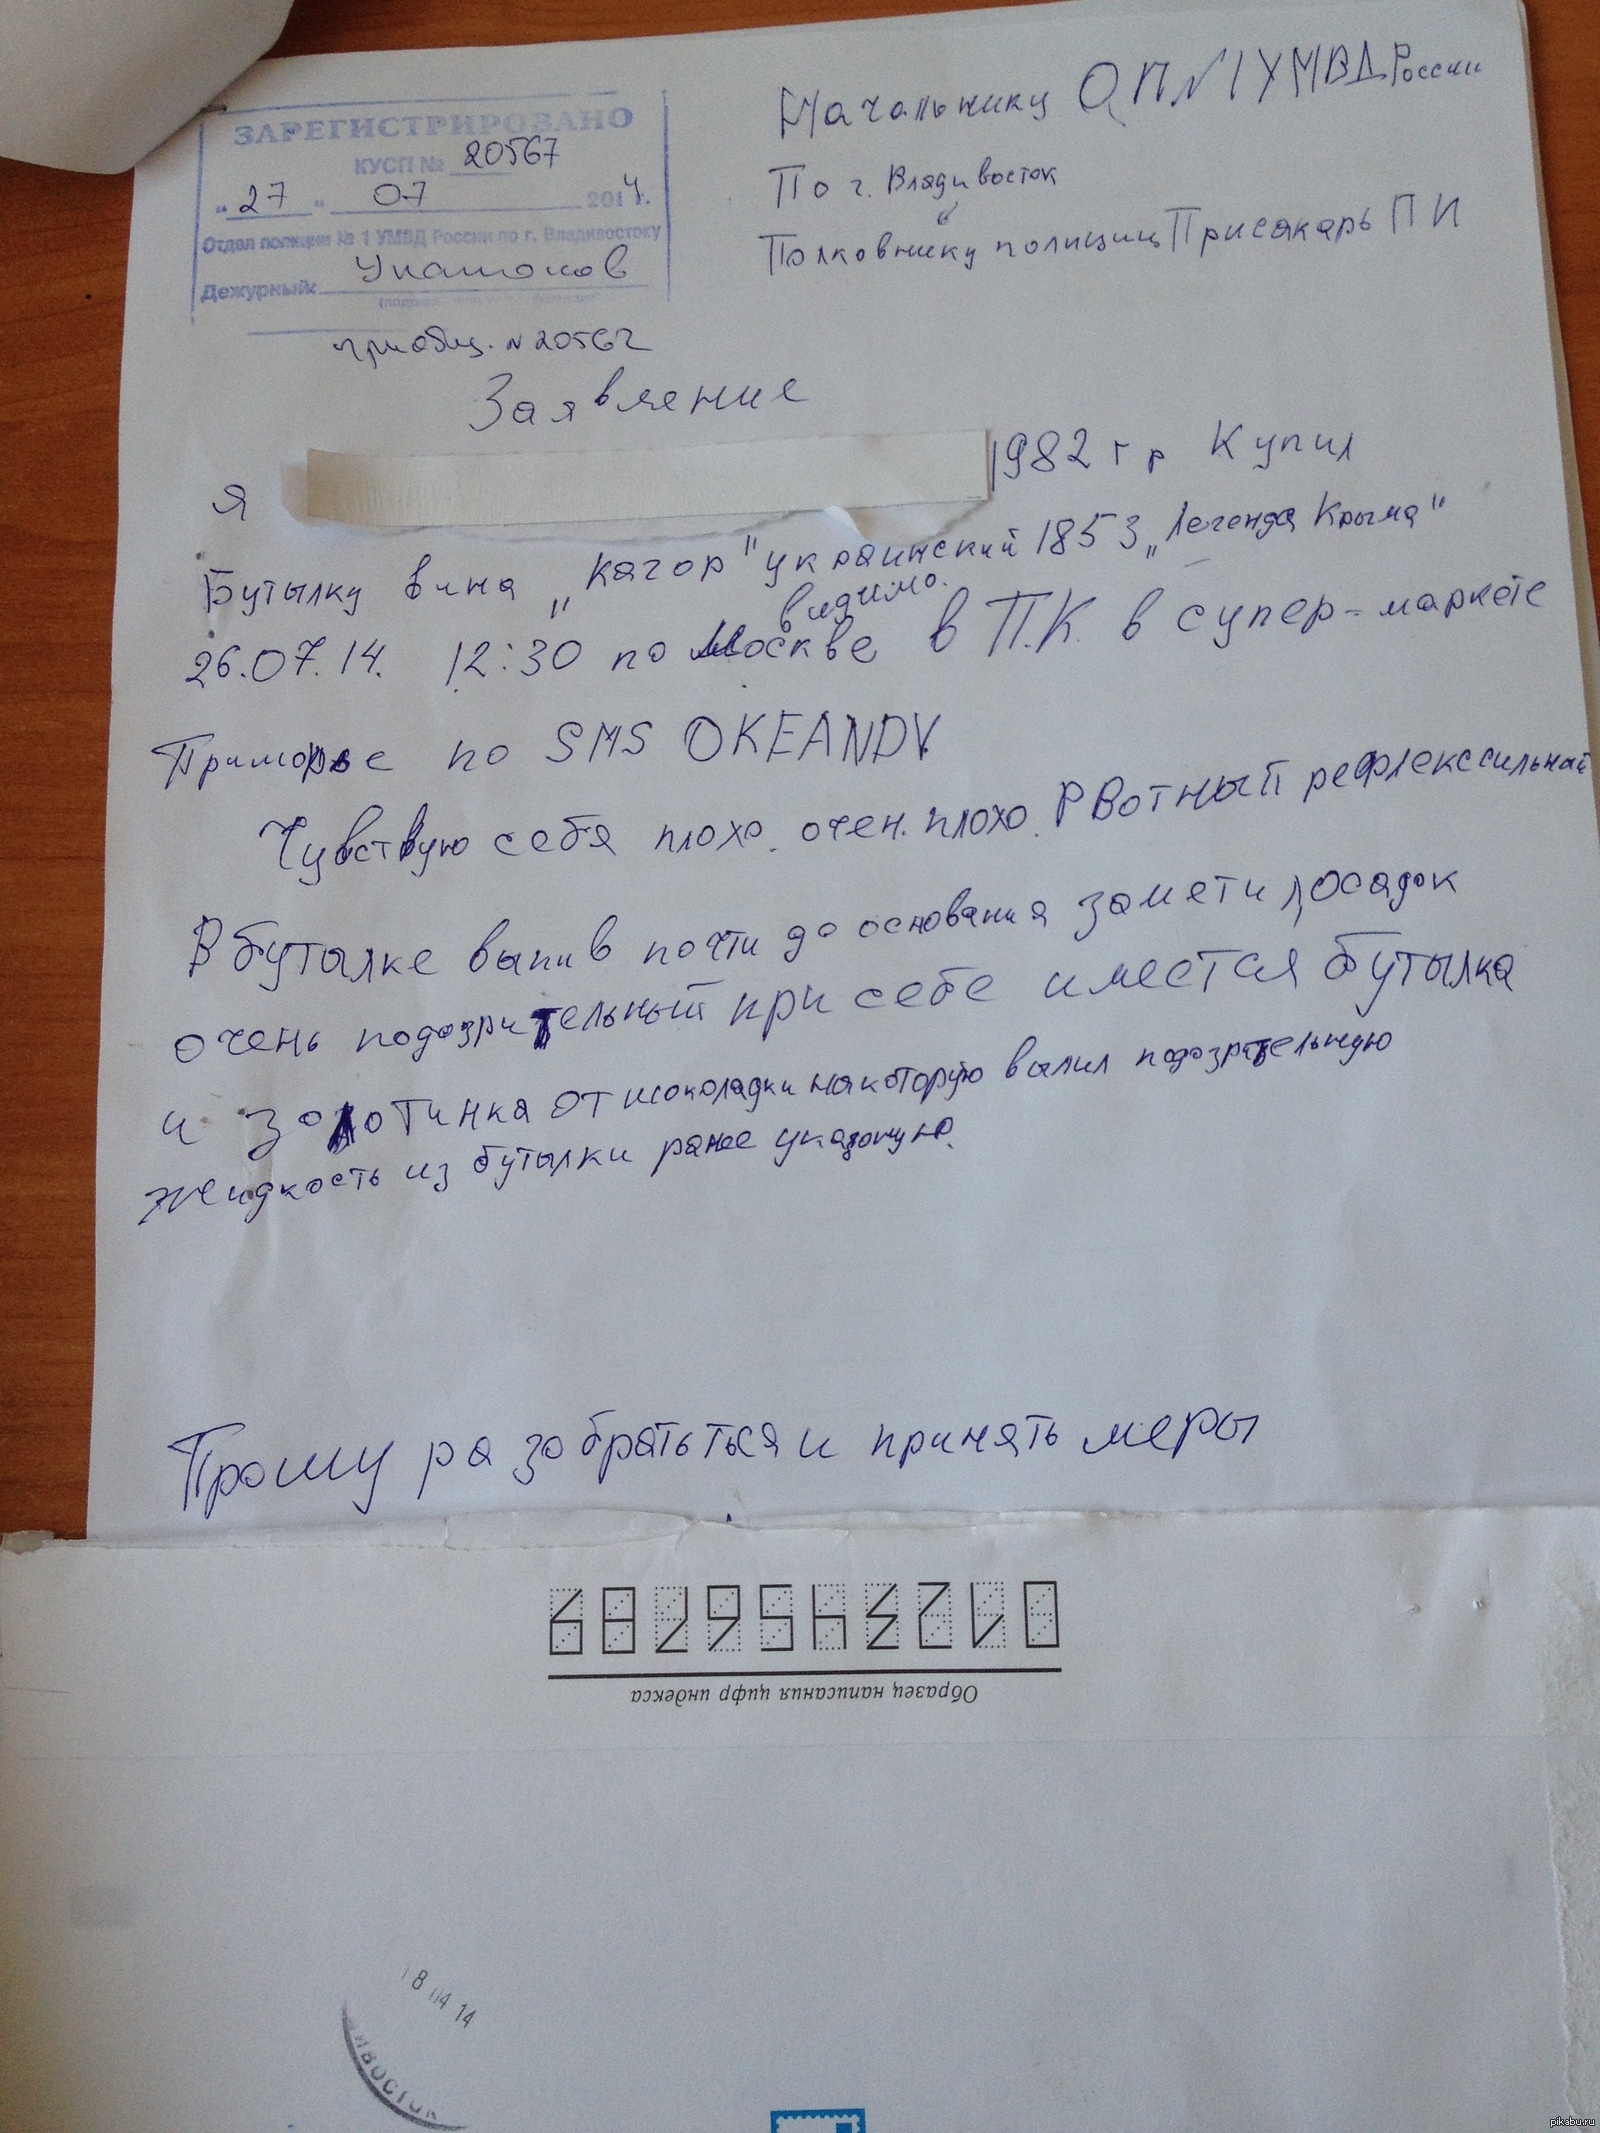 Начальнику ОП№1 УМВД России
По г. Владивосток
Полковнику полиции Присакарь П И
ЗАРЕГИСТРИРОВАНО
КУСП № 20567
"27" 07 2014 г.
Отдел полиции № 1 УМВД России по г. Владивостоку
Дежурный:
приобщ. N 20567
Заявление
Я 1982 г р Купил
Бутылку вина „Кагор" украинский 1853 „Легенда Крыма"
видимо.
26.07.14. 12:30 по Москве в П.К. в супер-маркете
Приморье по SMS OKEANDV
Чувствую себя плохо. очен. плохо. РВотный рефлекссильный
В бутылке выпив почти до основания заметил, осадок
очень подозрительный при себе имеется бутылка
и золотинка от шоколадки на которую вылил подозрательную
жидкость из бутылки ранее указаную.
Прошу разобратьться и принять меры
0123456789
Образец написания цифр индекса
18 04 14
ИВОСТОК
pikabu.ru